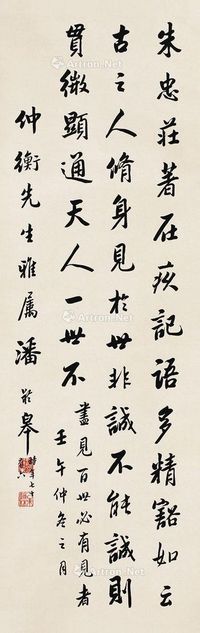 朱忠莊著在疚記語多精豁如云
古之人脩身見於世非誠不能誠則
貫微顯通天人一世不
盡見百世必有見者
壬午仲冬之月
仲衡先生雅属 潘齡皋
時年七十
Artron.Net
Artron.Net